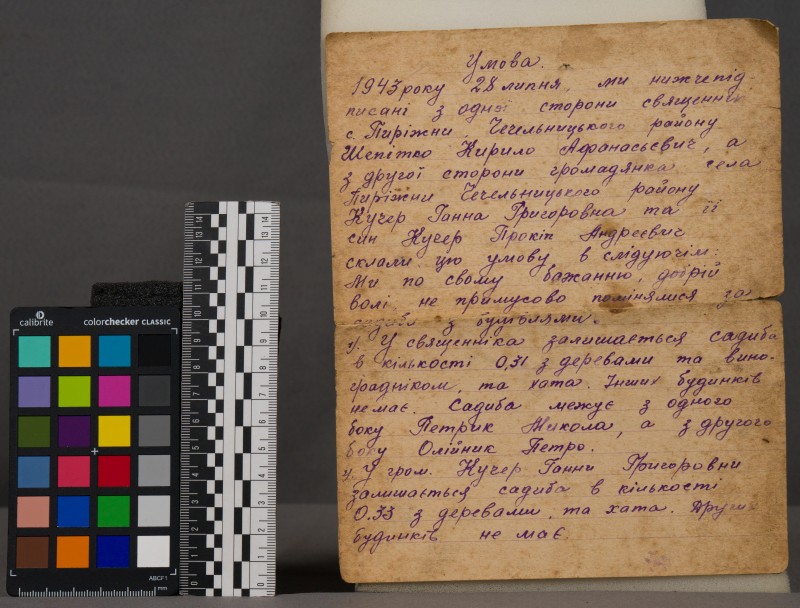 Умова.
1943 року 28 липня, ми нижчепід
писані з одної сторони священник
с. Пиріжни Чечельницького району
Шепітко Кирило Афанасьєвич, а
з другої сторони громадянка села
Пиріжни Чечельницького району
Кучер Ганна Григоровна та її
син Кучер Прокіп Андреєвич
склали цю умову в слідуючім:
Ми по свому бажанню, добрій
волі не примусово помінялися за
садиби з будівлями.
1). У священніка залишається садиба
в кількості 0,31 з деревами та вино-
градніком, та хата. Інших будинків
немає. Садиба межує з одного
боку Петрик Микола, а з другого
боку Олійник Петро.
2). У гром. Кучер Ганни Григоровни
залишається садиба в кількості
0.33 з деревами, та хата. Других
будинків не має.
calibrite
colorchecker CLASSIC
mm
0 1 2 3 4 5 6 7 8 9 10 11 12 13 14